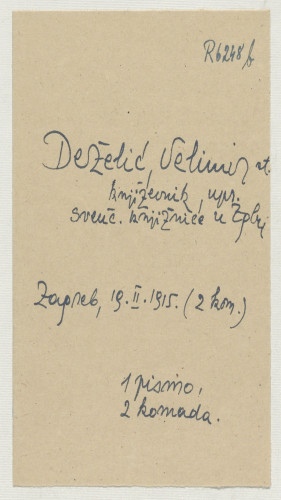 R6248 b
Deželić, Velimir st.
književnik, upr.
sveuč. knjižnice u Zgbu
Zagreb, 19. II. 1915. (2 kom.)
1 pismo,
2 komada.